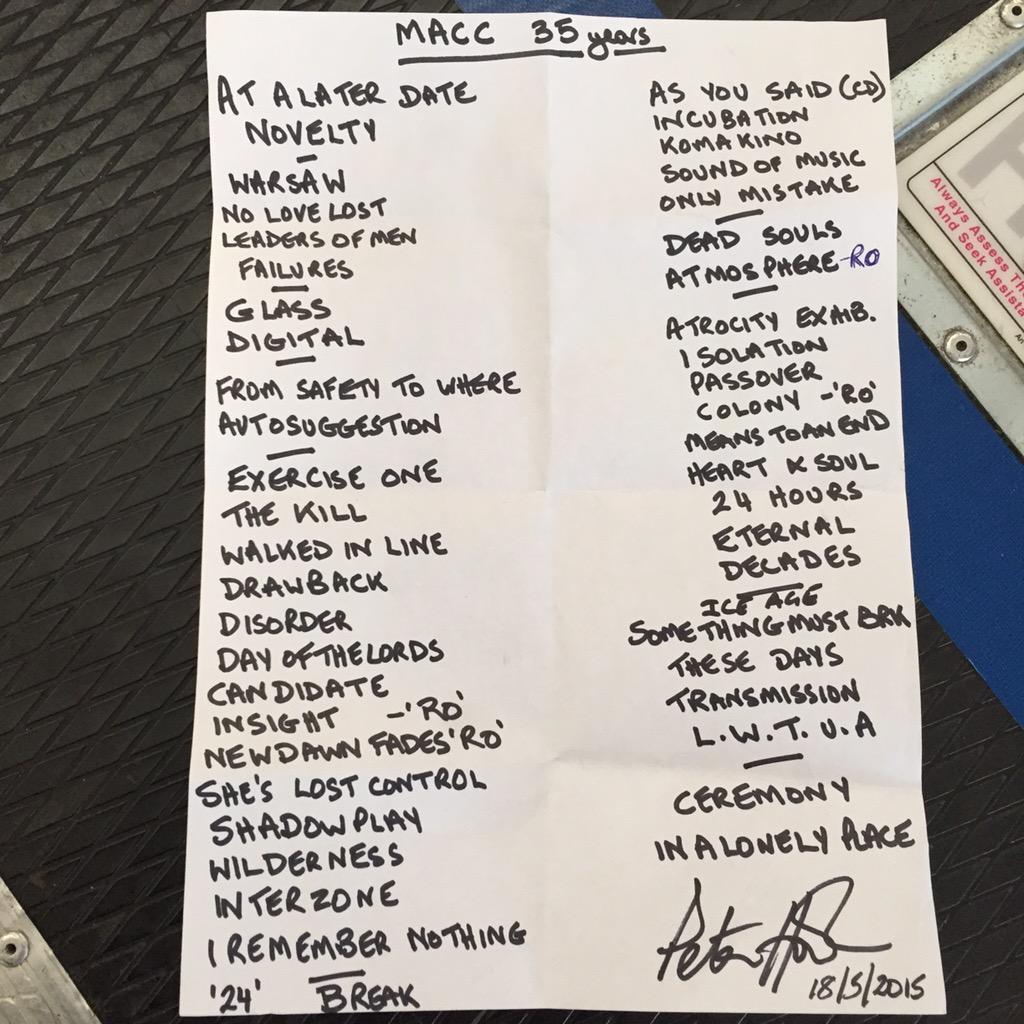 MACC 35 years
AT A LATER DATE
NOVELTY
WARSAW
NO LOVE LOST
LEADERS OF MEN
FAILURES
GLASS
DIGITAL
FROM SAFETY TO WHERE
AUTOSUGGESTION
EXERCISE ONE
THE KILL
WALKED IN LINE
DRAWBACK
DISORDER
DAY OF THE LORDS
CANDIDATE
INSIGHT -'RO'
NEWDAWN FADES 'RO'
SHE'S LOST CONTROL
SHADOWPLAY
WILDERNESS
INTERZONE
I REMEMBER NOTHING
'24' BREAK
AS YOU SAID (CD)
INCUBATION
KOMAKINO
SOUND OF MUSIC
ONLY MISTAKE
DEAD SOULS
ATMOSPHERE -RO
ATROCITY EXHIB.
ISOLATION
PASSOVER
COLONY -'RO'
MEANS TO AN END
HEART & SOUL
24 HOURS
ETERNAL
DECADES
ICE AGE
SOMETHING MUST BRK
THESE DAYS
TRANSMISSION
L.W.T.U.A
CEREMONY
IN A LONELY PLACE
18/5/2015
Always Assess
And Seek